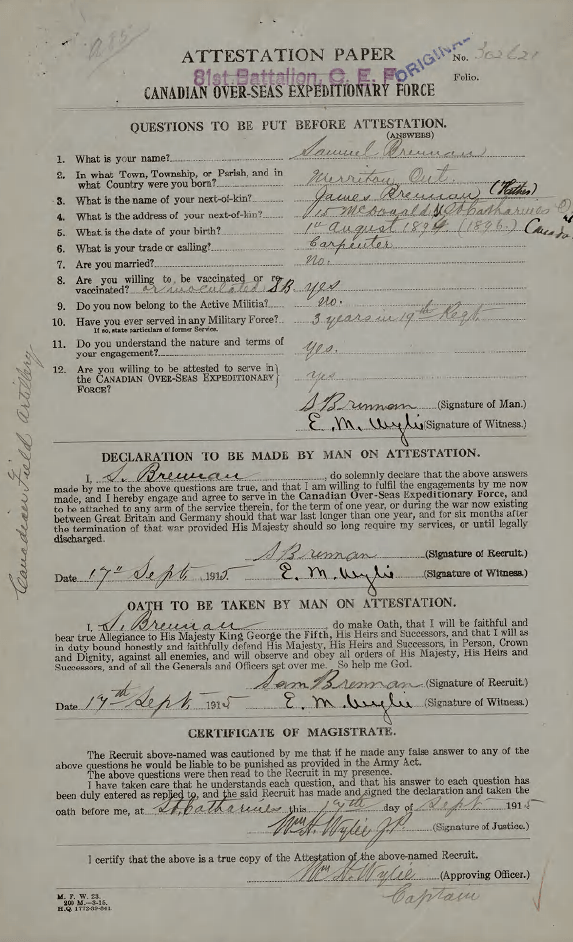 ATTESTATION PAPER
No.
ORIGINAL
81st Battalion, C. E. F.
Folio.
CANADIAN OVER-SEAS EXPEDITIONARY FORCE
QUESTIONS TO BE PUT BEFORE ATTESTATION.
(ANSWERS)
1. What is your name? Samuel Brennan
2. In what Town, Township, or Parish, and in
what Country were you born? Merritton Ont.
3. What is the name of your next-of-kin? James Brennan (Father)
4. What is the address of your next-of-kin? McDonald St Catharines Canada
5. What is the date of your birth? 1st August 1894 (1896.)
6. What is your trade or calling? Carpenter
7. Are you married? no.
8. Are you willing to be vaccinated or re-
vaccinated? or inoculated SB yes
9. Do you now belong to the Active Militia? no.
10. Have you ever served in any Military Force? 3 years in 19th Regt.
If so, state particulars of former Service.
11. Do you understand the nature and terms of
your engagement? yes.
12. Are you willing to be attested to serve in
the CANADIAN OVER-SEAS EXPEDITIONARY
FORCE? yes
S Brennan (Signature of Man.)
E. M. Wylie (Signature of Witness.)
Canadian Field Artillery
DECLARATION TO BE MADE BY MAN ON ATTESTATION.
I, S. Brennan, do solemnly declare that the above answers
made by me to the above questions are true, and that I am willing to fulfil the engagements by me now
made, and I hereby engage and agree to serve in the Canadian Over-Seas Expeditionary Force, and
to be attached to any arm of the service therein, for the term of one year, or during the war now existing
between Great Britain and Germany should that war last longer than one year, and for six months after
the termination of that war provided His Majesty should so long require my services, or until legally
discharged.
S Brennan (Signature of Recruit.)
Date 17th Sept 1915. E. M. Wylie (Signature of Witness.)
OATH TO BE TAKEN BY MAN ON ATTESTATION.
I, S. Brennan, do make Oath, that I will be faithful and
bear true Allegiance to His Majesty King George the Fifth, His Heirs and Successors, and that I will as
in duty bound honestly and faithfully defend His Majesty, His Heirs and Successors, in Person, Crown
and Dignity, against all enemies, and will observe and obey all orders of His Majesty, His Heirs and
Successors, and of all the Generals and Officers set over me. So help me God.
Sam Brennan (Signature of Recruit.)
Date 17th Sept 1915 E. M. Wylie (Signature of Witness.)
CERTIFICATE OF MAGISTRATE.
The Recruit above-named was cautioned by me that if he made any false answer to any of the
above questions he would be liable to be punished as provided in the Army Act.
The above questions were then read to the Recruit in my presence.
I have taken care that he understands each question, and that his answer to each question has
been duly entered as replied to, and the said Recruit has made and signed the declaration and taken the
oath before me, at St. Catharines this 17th day of Sept 1915
Wm H. Wylie J.P. (Signature of Justice.)
I certify that the above is a true copy of the Attestation of the above-named Recruit.
Wm H. Wylie (Approving Officer.)
Captain
M. F. W. 23.
200 M.—3-15.
H.Q. 1772-39-841.